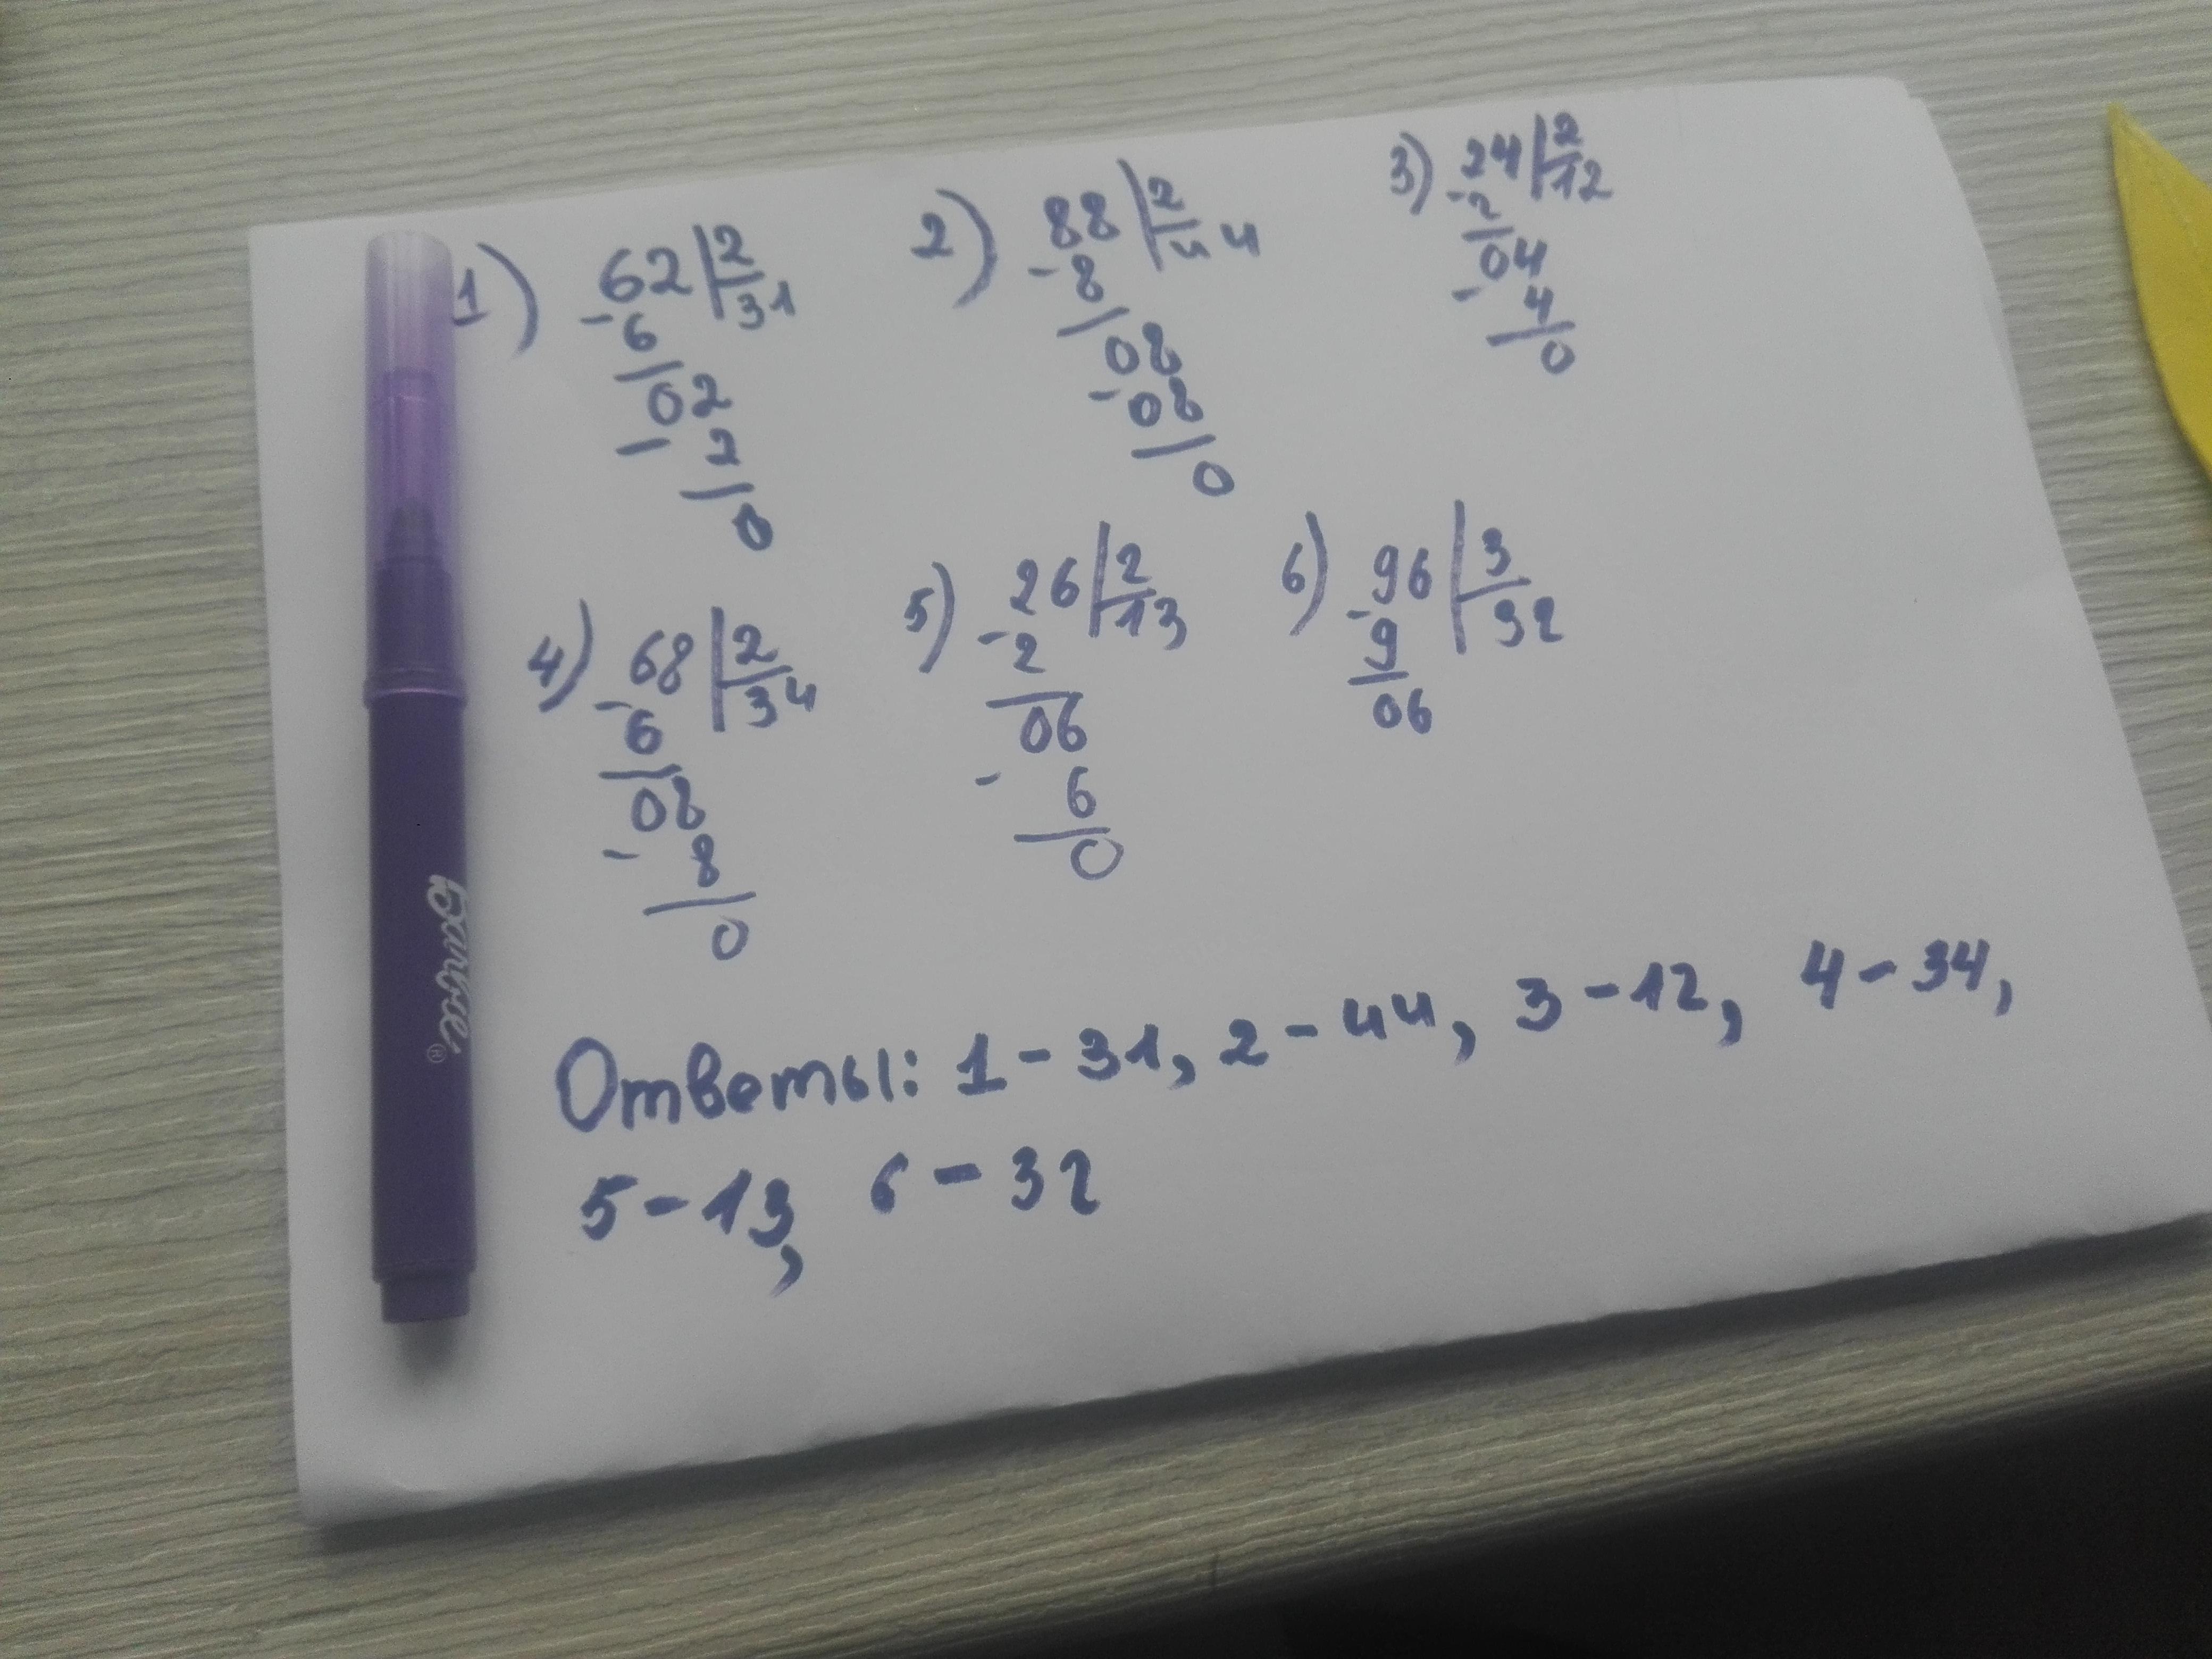 1) 62 2
- 6 31
02
- 2
0
2) 88 2
- 8 44
08
- 08
0
3) 24 2
- 2 12
04
- 4
0
4) 68 2
- 6 34
08
- 8
0
5) 26 2
- 2 13
06
- 6
0
6) 96 3
- 9 32
06
Ответы: 1-31, 2-44, 3-12, 4-34,
5-13, 6-32